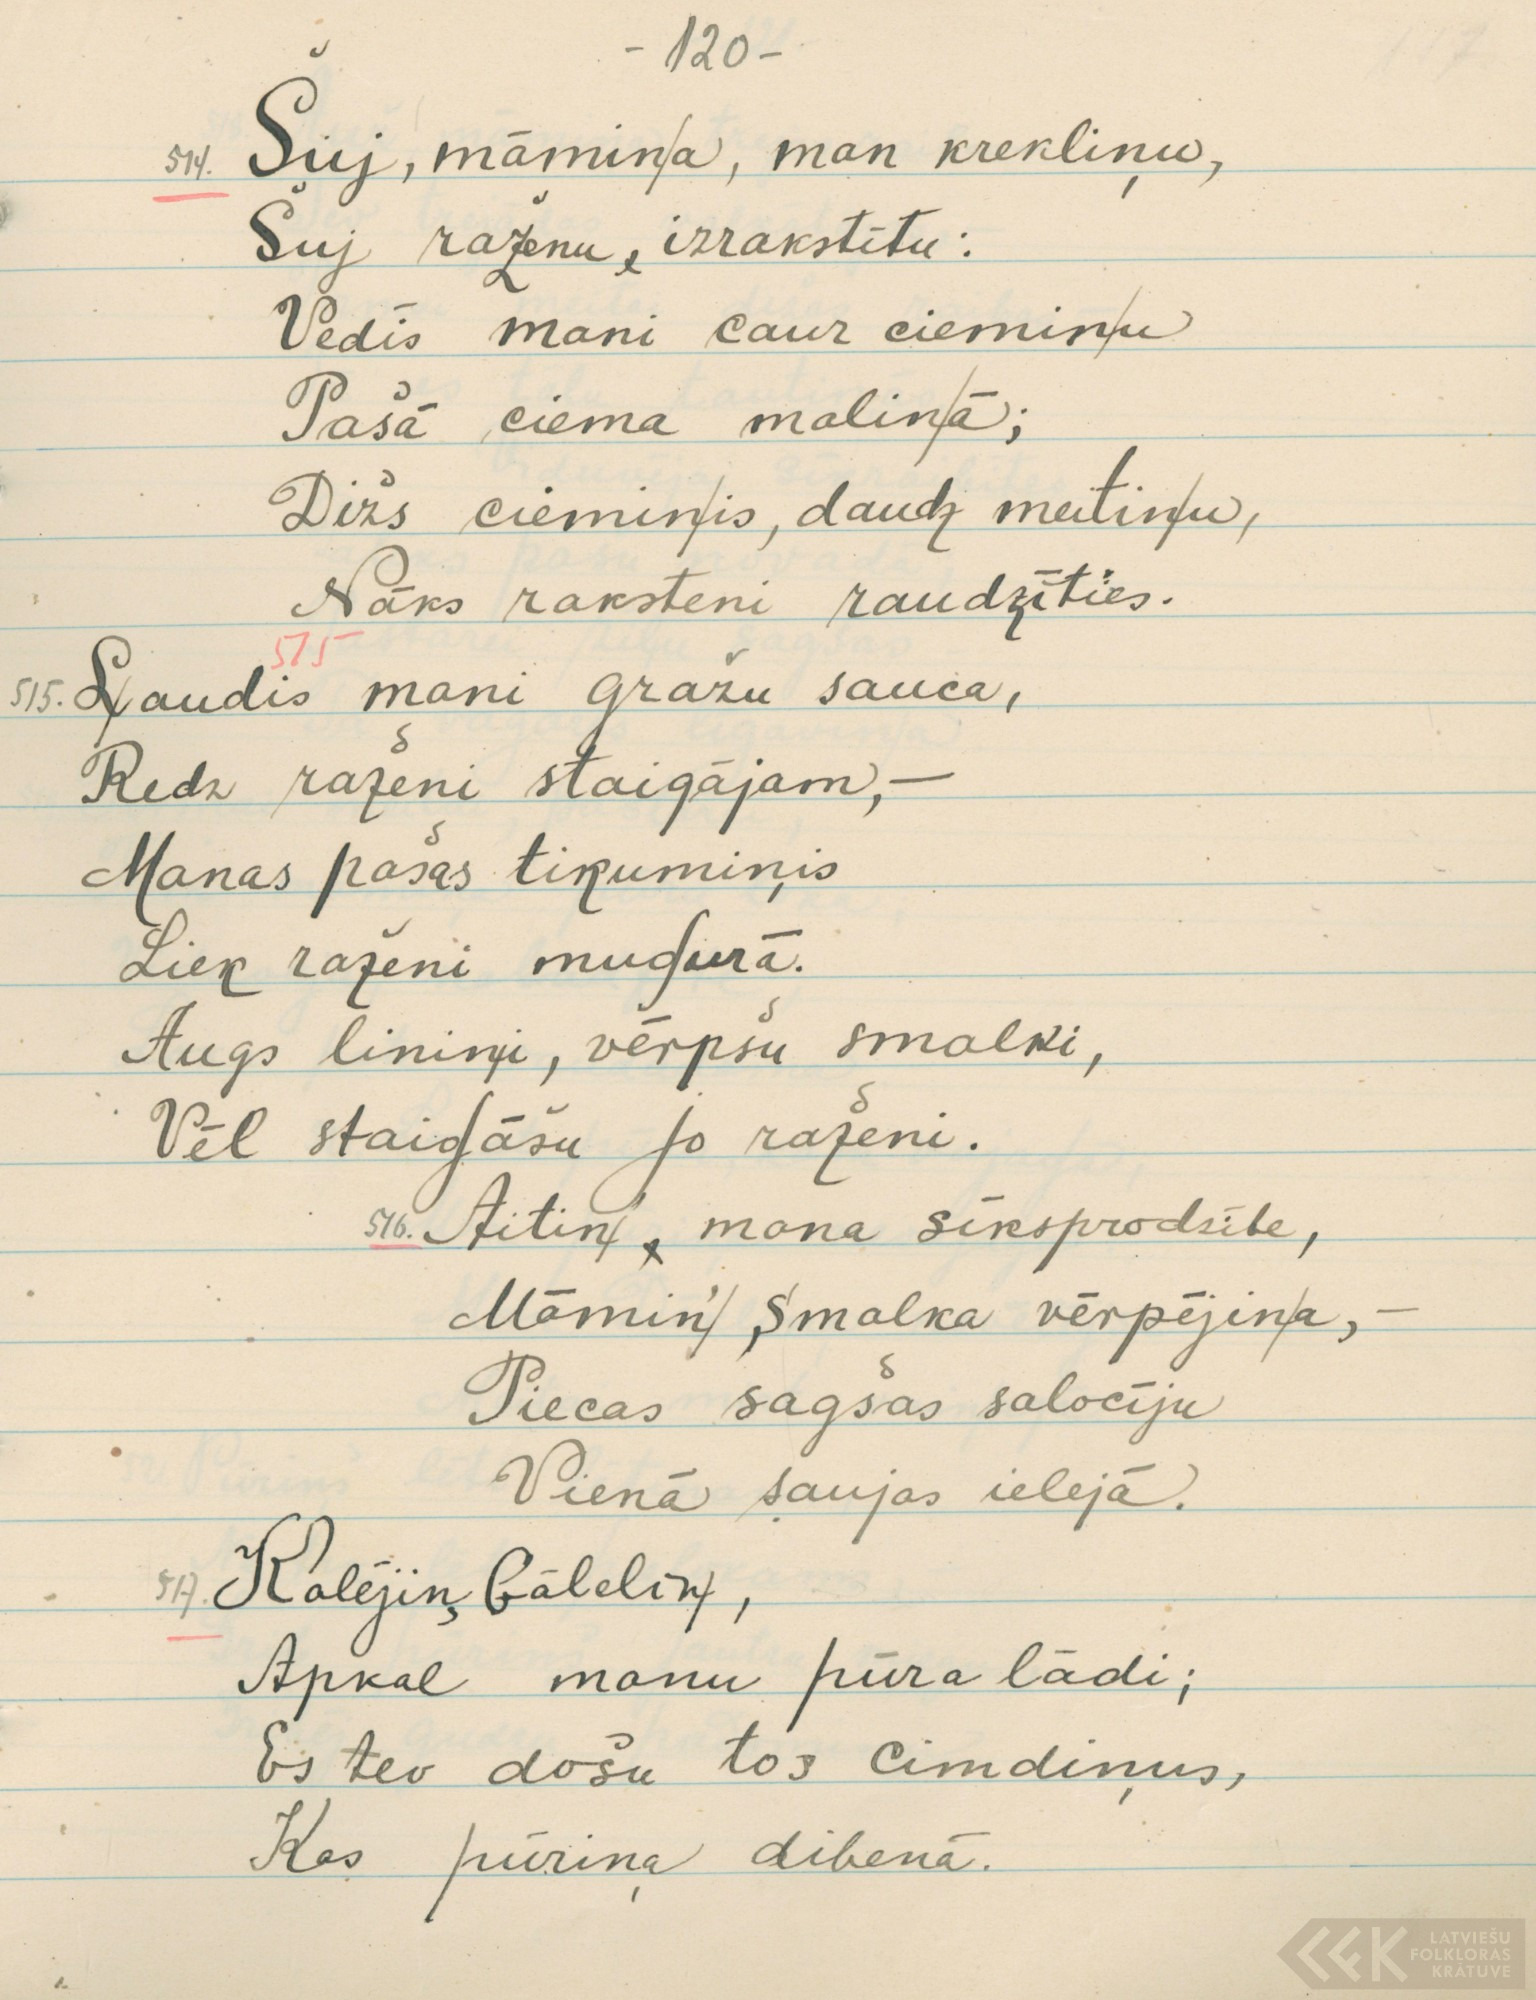 - 120 -
514. Šuj, māmiņa, man krekliņu,
Šuj raženu, izrakstītu:
Vedīs mani caur ciemiņu
Pašā ciema maliņā;
Dižs ciemiņis, daudz meitiņu,
Nāks raksteni raudzīties.
515
515. Ļaudis mani gražu sauca,
Redz raženi staigājam, —
Manas pašas tikumiņis
Liek raženi mugurā.
Augs liniņi, vērpšu smalki,
Vēl staigāšu jo raženi.
516. Aitiņ, mana sīksprodzīte,
Māmiņ, smalka vērpējiņa, —
Piecas sagšas salocīju
Vienā saujas ielejā.
517. Kalējiņ, bāleliņ,
Apkal manu pūra lādi;
Es tev došu tos cimdiņus,
Kas pūriņa dibenā.
LATVIEŠU
FOLKLORAS
KRĀTUVE